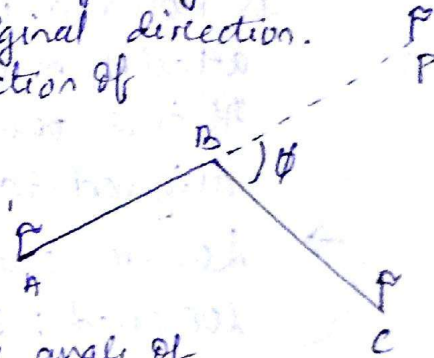 ginal direction.
ction of
P
B
φ
A
C
angle of